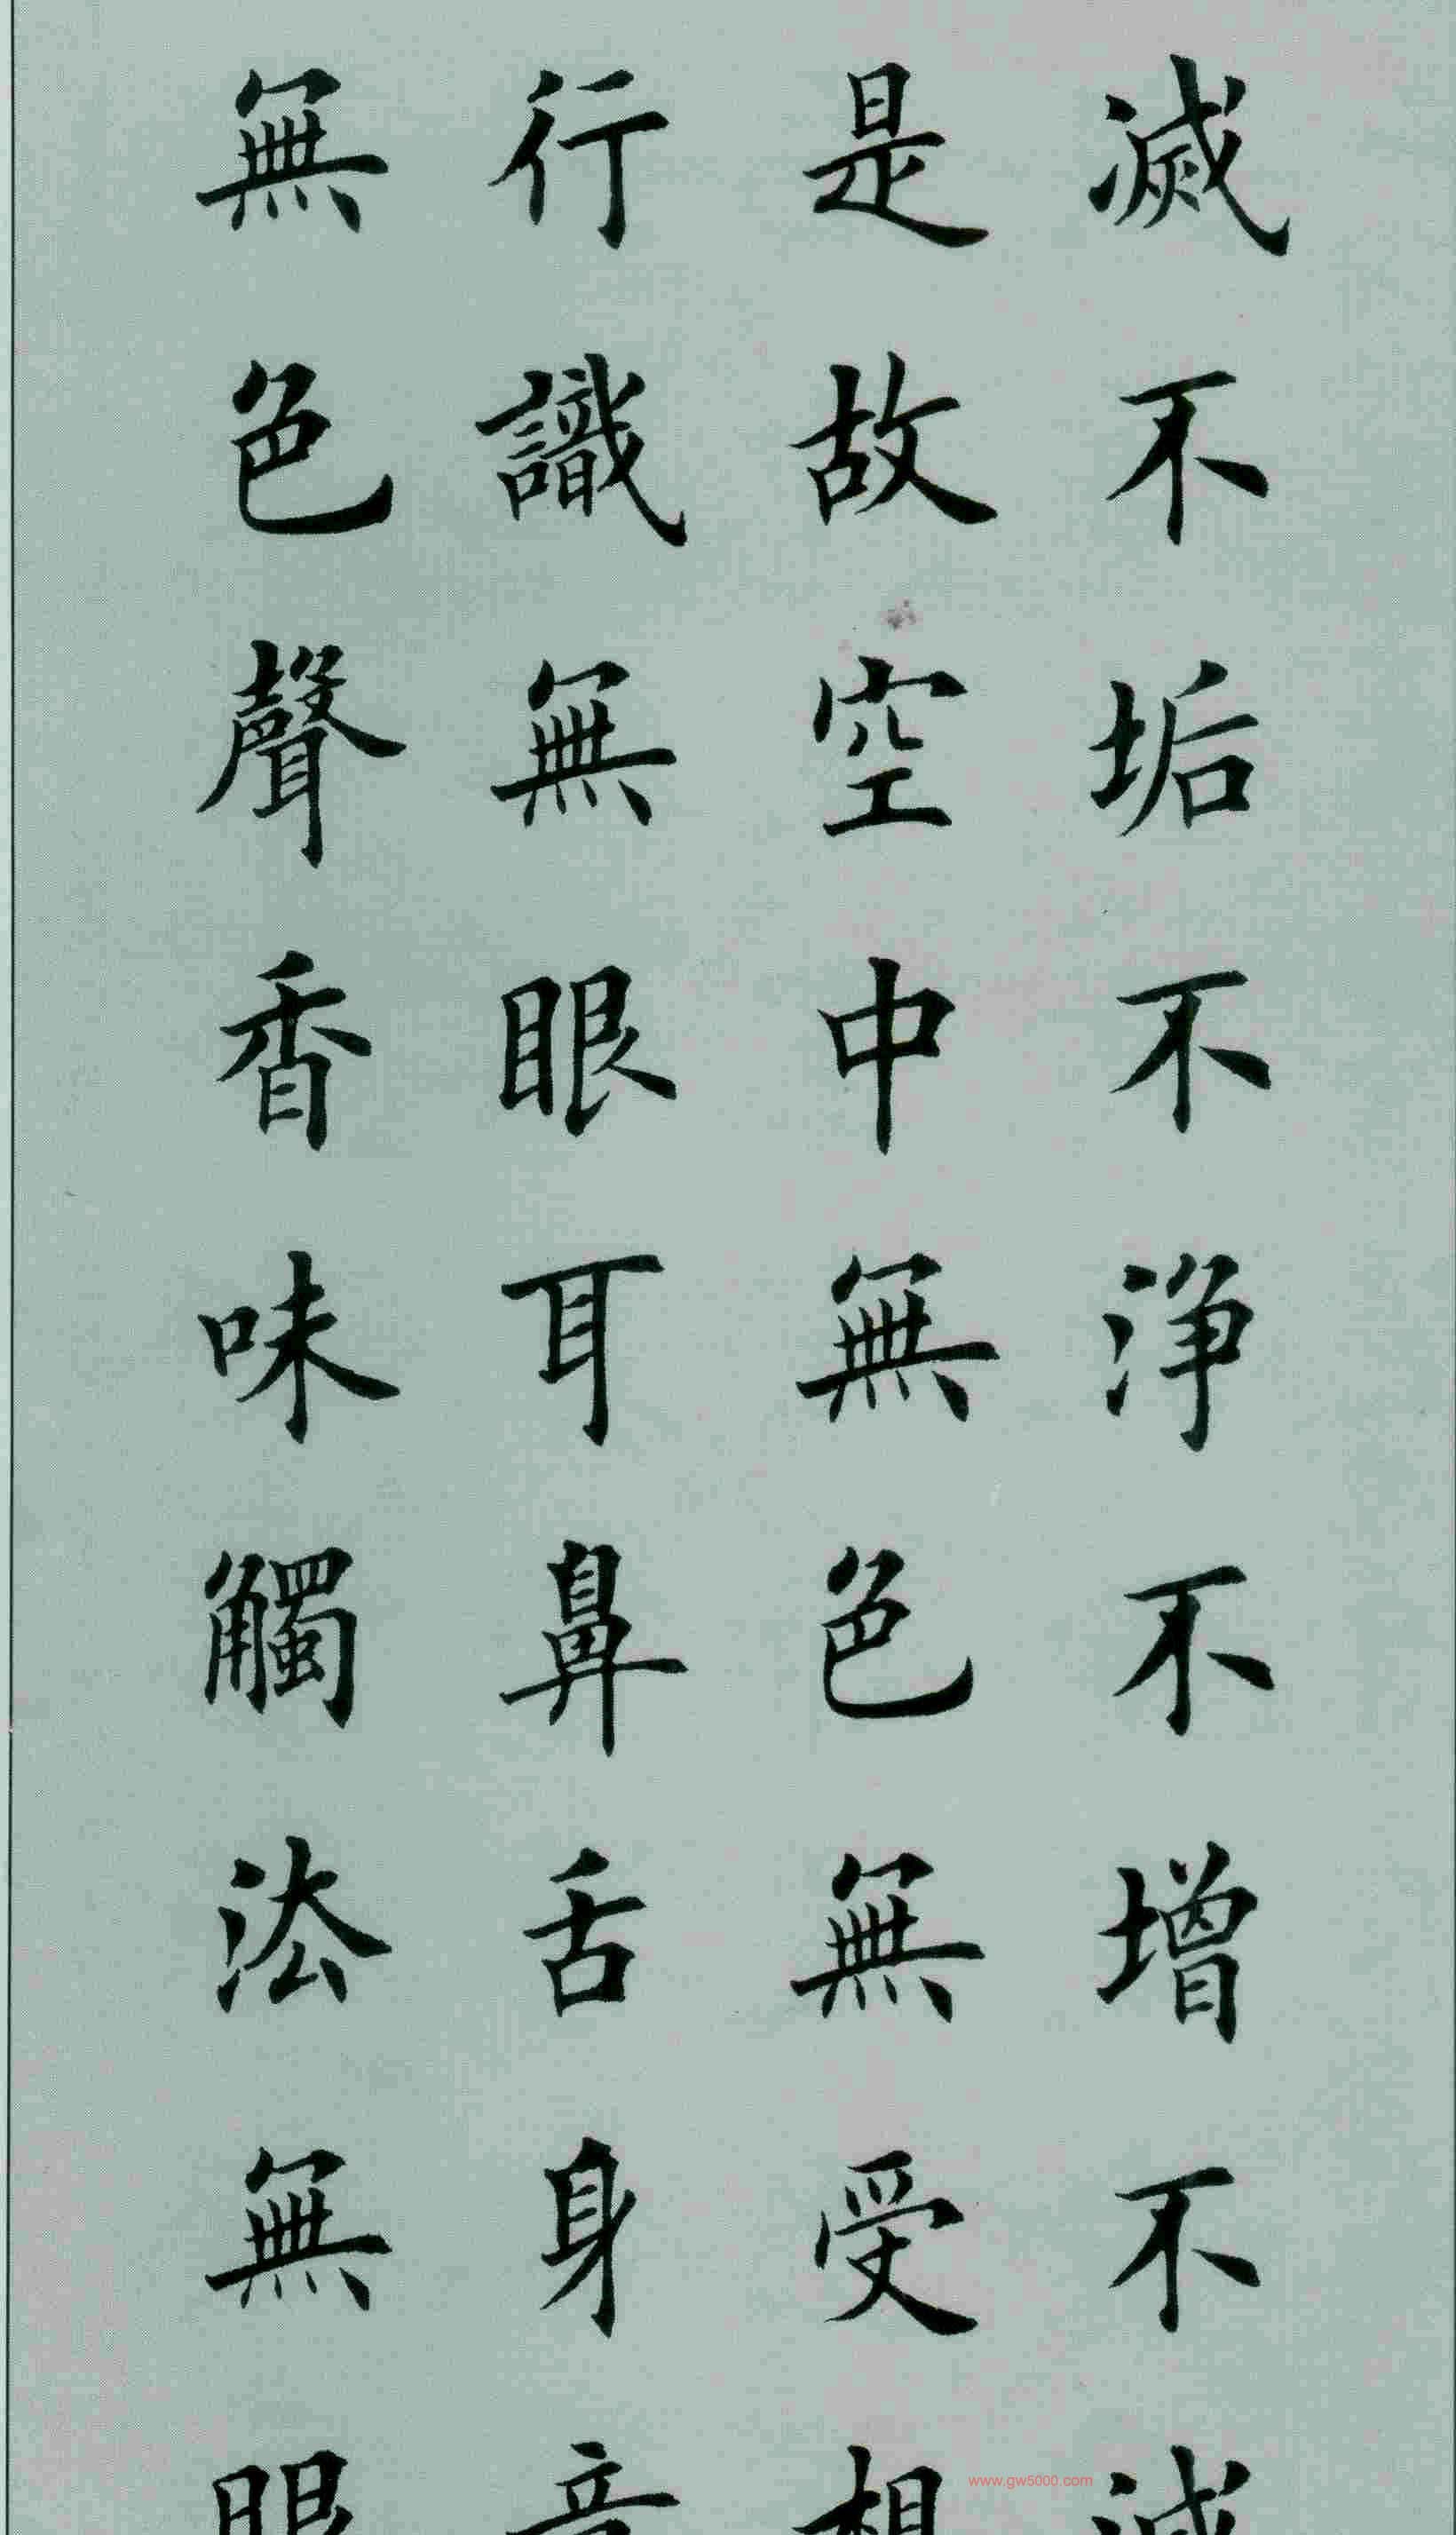 滅不垢不浄不增不減
是故空中無色無受想
行識無眼耳鼻舌身意
無色聲香味觸法無眼
www.gw5000.com